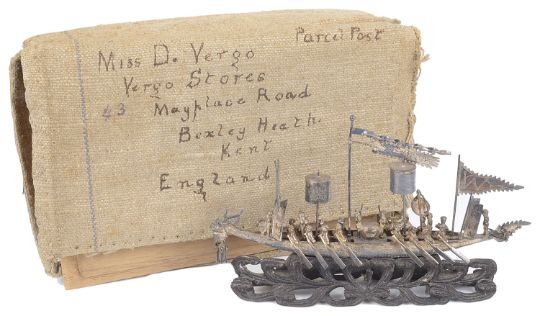 Parcel Post
Miss D. Vergo
Vergo Stores
43 Mayplace Road
Bexley Heath.
Kent
England